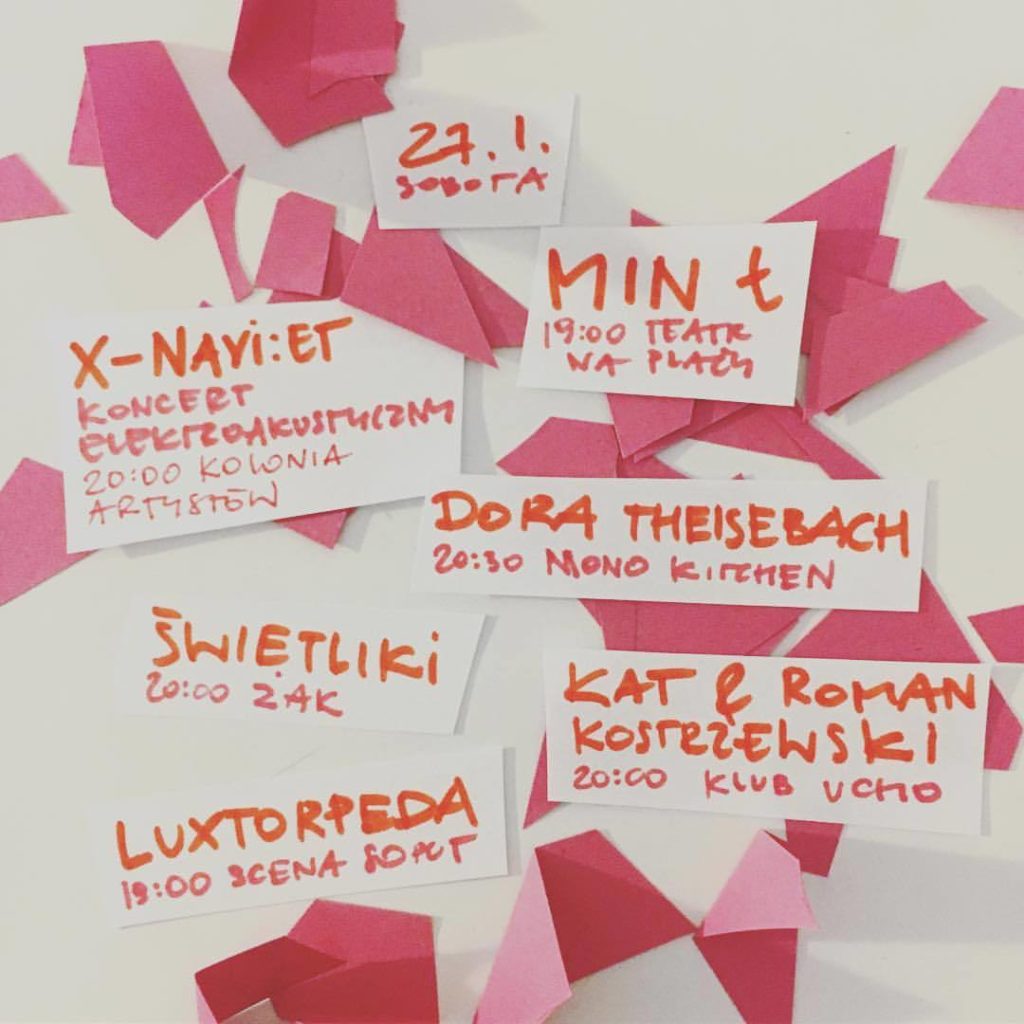 27.1.
SOBOTA
MIN t
19:00 TEATR
NA PLAŻY
X-NAVI:ET
KONCERT
ELEKTROAKUSTYCZNY
20:00 KOLONIA
ARTYSTÓW
DORA THEISEBACH
20:30 MONO KITCHEN
ŚWIETLIKI
20:00 ŻAK
KAT & ROMAN
KOSTRZEWSKI
20:00 KLUB UCHO
LUXTORPEDA
19:00 SCENA SOPOT